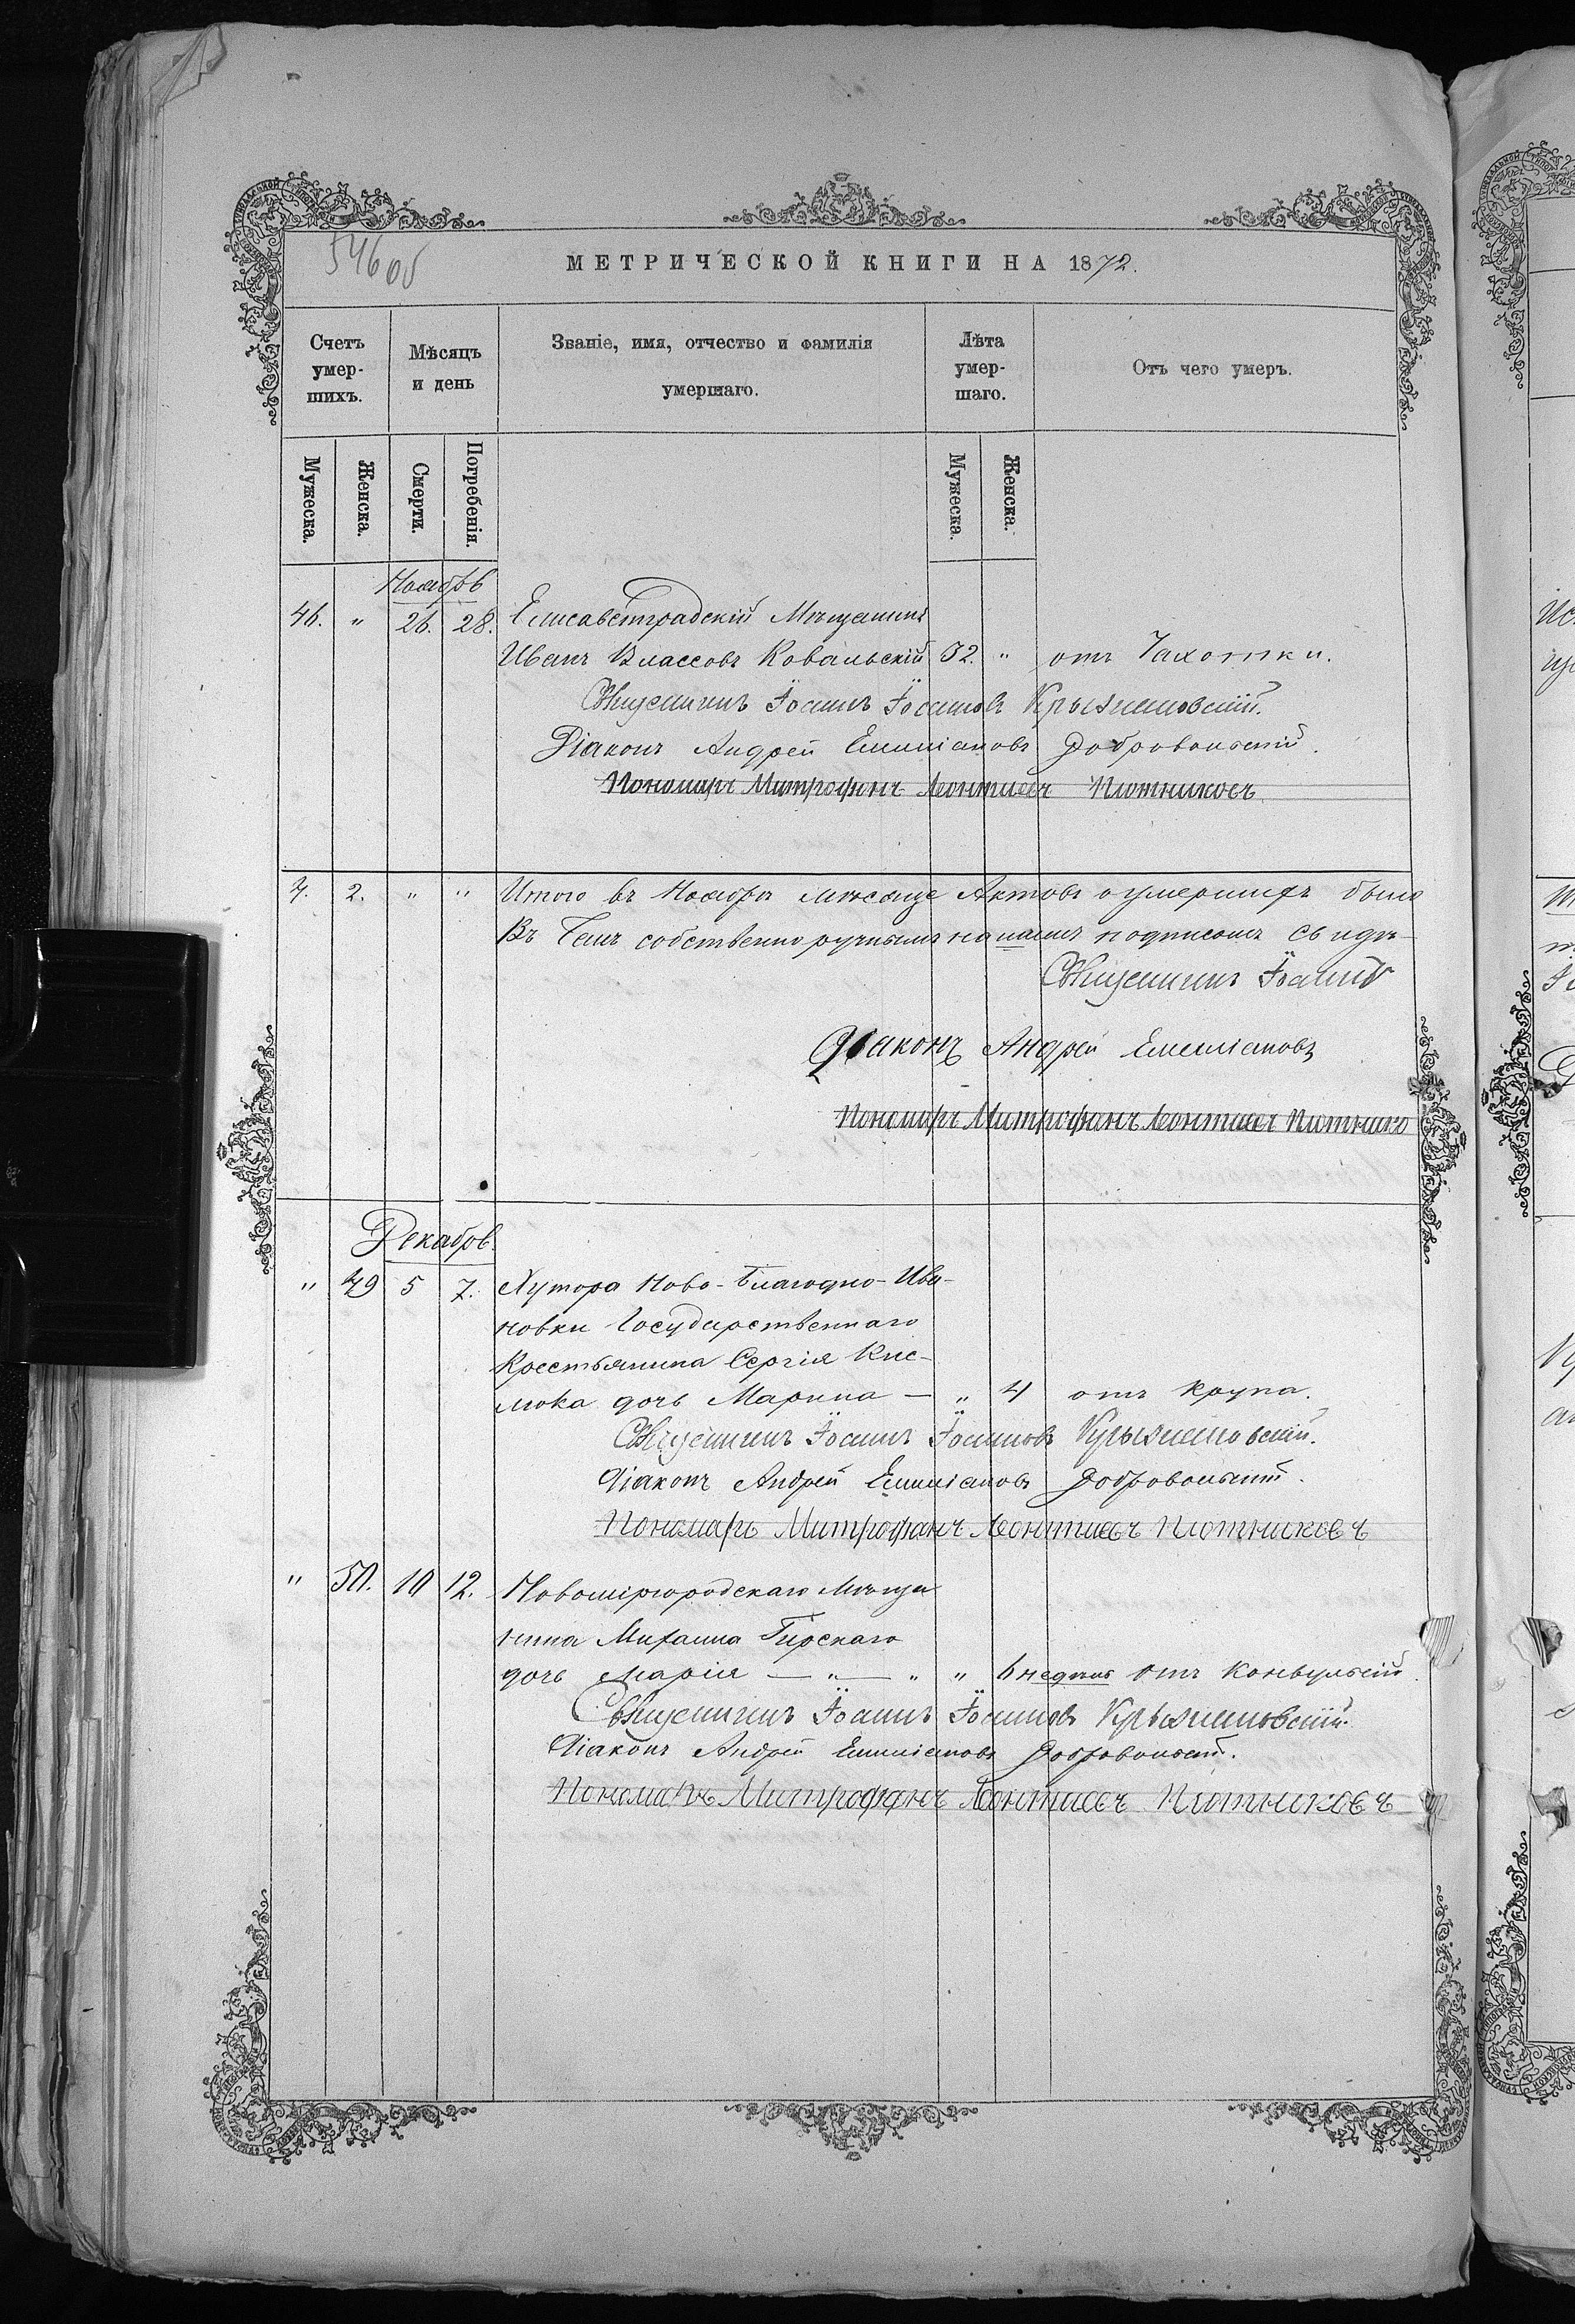 546об
МЕТРИЧЕСКОЙ КНИГИ НА 1872.
Счетъ умер-шихъ.
Мѣсяцъ и день
Званіе, имя, отчество и фамилія умершаго.
Лѣта умер-шаго.
Отъ чего умеръ.
Мужеска.
Женска.
Смерти.
Погребенія.
Мужеска.
Женска.
Ноябрь
46. " 26. 28. Елисаветградскій Мѣщанинъ
Иванъ Влассовъ Ковальскій 32. " отъ Чахотки.
Священникъ Іоаннъ Іоанновъ Крыжановскій.
Діаконъ Андрей Емиліановъ Добровольскій.
Пономарь Митрофанъ Леонтиевъ Плотниковъ
4. 2. " " Итого въ Ноябрѣ мѣсяцѣ Актовъ о умершихъ было
Въ Чемъ собственноручнымъ нашимъ подписомъ
Священникъ Іоаннъ
Діаконъ Андрей Емиліановъ
Пономарь Митрофанъ Леонтиевъ Плотнико
Декабрь.
" 49 5 7. Хутора Ново-Благодно-Ива-
новки Государственнаго
Крестьянина Сергія Кис-
люка дочь Марина — " 4 отъ крупа.
Священникъ Іоаннъ Іоанновъ Крыжановскій.
Діаконъ Андрей Емиліановъ Добровольскій.
Пономарь Митрофанъ Леонтиевъ Плотниковъ
" 50. 10 12. Новомиргородскаго Мѣща
нина Михаила Гирскаго
дочь Марія — " — " " 6 недѣль отъ Конвульсій.
Священникъ Іоаннъ Іоанновъ Крыжановскій.
Діаконъ Андрей Емиліановъ Добровольскій.
Пономарь Митрофанъ Леонтиевъ Плотниковъ